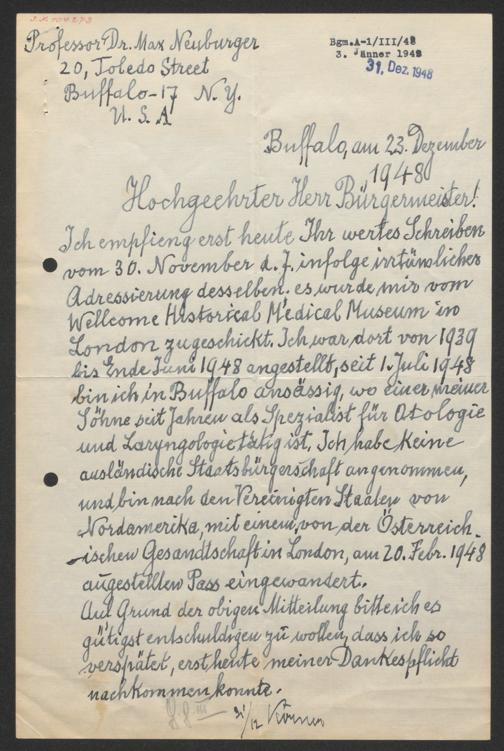 Professor Dr. Max Neuburger
20, Toledo Street
Buffalo-17 N.Y.
U.S.A
Bgm.A-1/III/48
3. Jänner 1948
31. Dez. 1948
Buffalo, am 23. Dezember
1948
Hochgeehrter Herr Bürgermeister!
Ich empfieng erst heute Ihr wertes Schreiben
vom 30. November d. J. infolge irrtümlicher
Adressierung desselben. es wurde mir vom
Wellcome Historical Medical Museum in
London zugeschickt. Ich war dort von 1939
bis Ende Juni 1948 angestellt, seit 1. Juli 1948
bin ich in Buffalo ansässig, wo einer meiner
Söhne seit Jahren als Spezialist für Otologie
und Laryngologie tätig ist. Ich habe keine
ausländische Staatsbürgerschaft angenommen,
und bin nach den Vereinigten Staaten von
Nordamerika, mit einem, von der Österreich-
ischen Gesandtschaft in London, am 20. Febr. 1948
ausgestellten Pass eingewandert.
Auf Grund der obigen Mitteilung bitte ich es
gütigst entschuldigen zu wollen, dass ich so
verspätet, erst heute meiner Dankespflicht
nachkommen konnte.
31/12